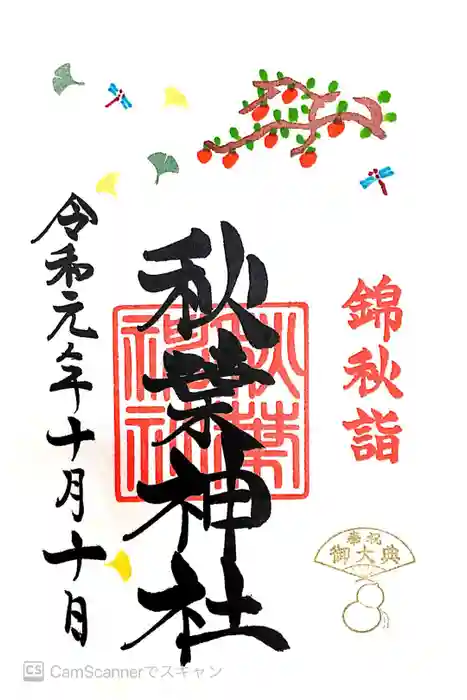 錦秋詣
奉祝
御大典
秋葉神社
秋葉
神社
令和元年十月十日
CS CamScannerでスキャン